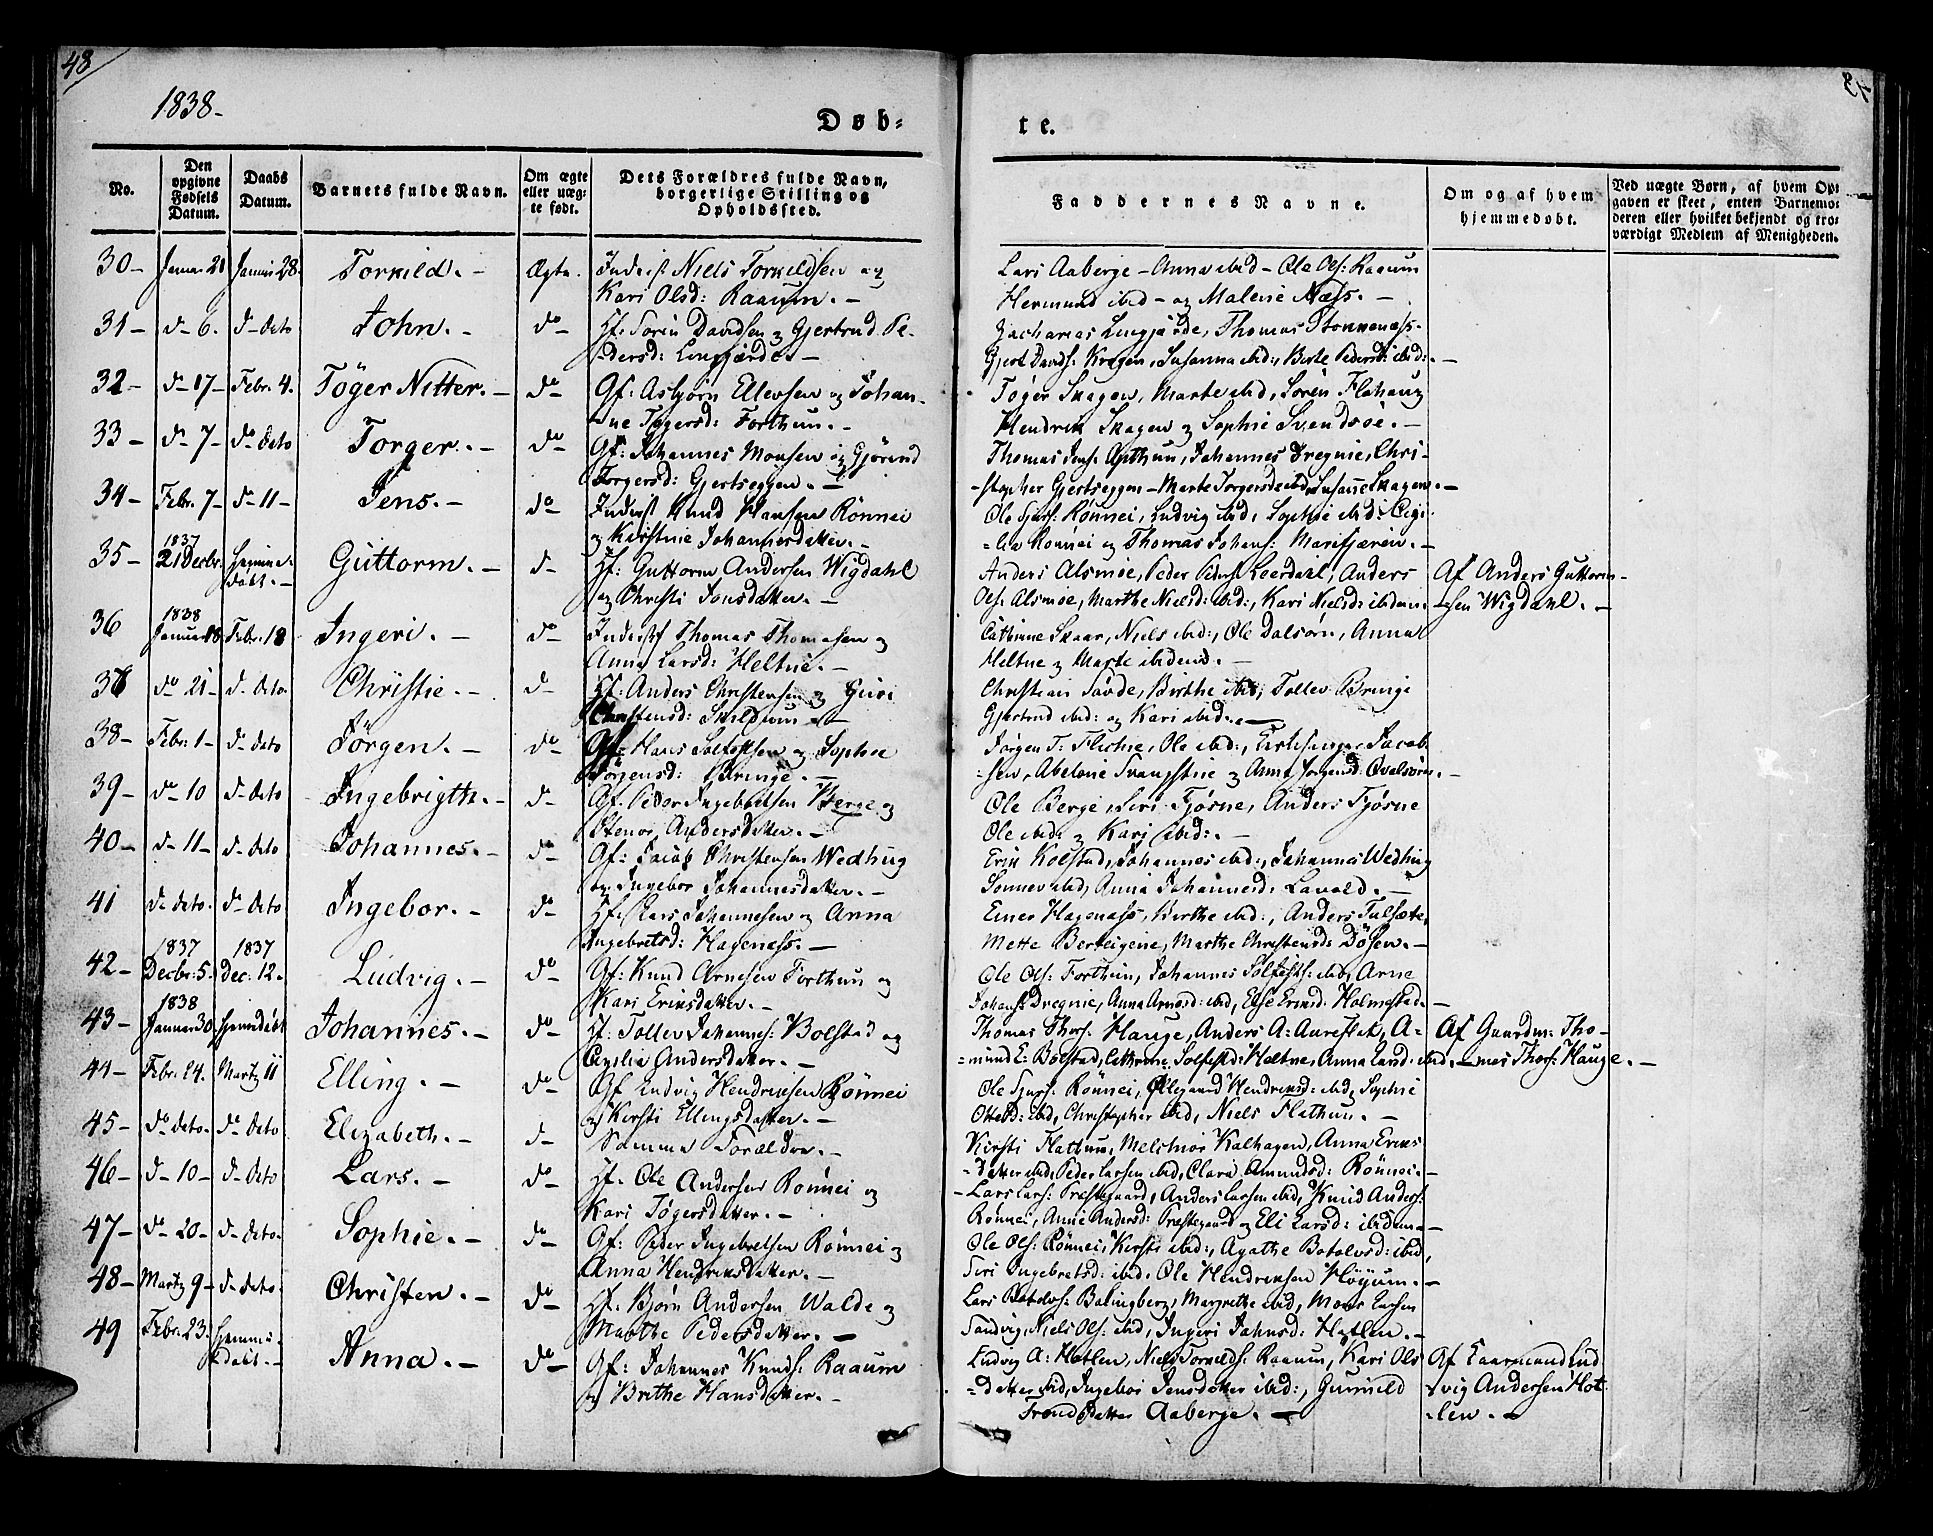 48
1838-
Døb=
te.
No.
Den opgivne Fødsels Datum.
Daabs Datum.
Barnets fulde Navn.
Om ægte eller uægte født.
Dets Forældres fulde Navn, borgerlige Stilling og Opholdssted.
Faddernes Navne.
Om og af hvem hjemmedøbt.
Ved uægte Børn, af hvem Opgaven er skeet, enten Barnemoderen eller hvilket bekjendt og troværdigt Medlem af Menigheden.
30- Januar 21 Januar 28. Torkild. - Ægte. Inderst Niels Torkildsen og
Kari Olsd: Raaum. -
Lars Aaberge - Anna ibid - Ole Ols: Raaum
Hermund ibid - og Malene Næss. -
31- d- 6. d- deto John. - do- Hf: Sørin Davidsen og Gjertrud Pe-
dersd: Lingjærdet -
Zacharias Lingjærde, Thomas Stonnenæss-
Gjert Davids: Kragen, Susanna ibid:, Birte Pedersd: ibid: -
32- d- 17- Febr. 4. Tøger Nitter. - do- Gf: Asbjørn Ellevsen og Johan-
ne Tøgersd: Forthun. -
Tøger Skagen, Marte ibid, Søren Flahaug
Hendrik Skagen og Sophie Svendsøe. -
33- d- 7- do deto Torger. - do- Gf: Johannes Monsen og Gjørind
Torgersd: Gjertseggen. -
Thomas Jens: Apthun, Johannes Dregnie, Chri-
-stopher Gjertseggen - Marte Torgersd: ibid, Susanne Skagen. -
34- Febr. 7- d- 11- Jens. - do- Inderst Knud Hansen Rønnei
og Kirstine Johannesdatter. -
Ole Sjurs: Rønnei, Ludvig ibid, Sophie ibid: Ceci-
-lia Rønnei og Thomas Johans: Marifjæren. -
35- 1837 21 Decbr. Hjemme-døbt. - Guttorm. - d- Hf: Guttorm Andersen Wigdahl
og Christi Jonsdatter. -
Anders Alsmoe, Peder Peders: Leerdahl, Anders
Ols: Alsmoe, Marthe Nielsd: ibid:, Kari Nielsd: ibidem. -
Af Anders Guttorm-
-sen Wigdahl. -
36 1838 Januar 18 Febr. 18 Ingeri. - do- Inderst Thomas Thomasen og
Anna Larsd: Heltne. -
Cathrine Skaar, Niels ibid:, Ole Dalsørn, Anna
Heltne og Marte ibidem. -
37 do 21- d- deto Christie. - d- Hf: Anders Christensen og Guri
Christensd: Skildum -
Christian Søvde, Birthe ibid, Tollev Bringe
Gjertrud ibid: og Kari ibid: -
38- Febr. 1- d- deto Jørgen. - do- Gf: Hans Solfestsen og Sophie
Jørgensd: Bringe. -
Jørgen T: Flichie, Ole ibid:, Jacob-
-sen, Abelone og Anna Jørgensd: Qvalsøren. -
39- d- 10 d- deto Ingebrigth. - d- Gf: Peder Ingebretsen Berge og
Stenor Andersdatter. -
Ole Berge, Siri Fjøsne, Anders Fjøsne
Ole ibid: og Kari ibid:. -
40- d- 11- d- deto Johannes. - do- Gf: Jacob Christensen Wedhug
og Ingebor Johannesdatter. -
Erik Kolstad, Johannes ibid:, Johannes Wedhug
Sonnev ibid, Anna Johannesd: Lavold. -
41 d- deto. d- deto Ingebor. - do- Hf: Lars Johannesen og Anna
Ingebretsd: Hagenæss. -
Einer Hagenæss, Birthe ibid:, Anders Talsæte,
Mette Berteigene, Marthe Christensd: Døsen. -
42- 1837 Decbr. 5. 1837 Dec: 12. Ludvig. - do- Gf: Knud Arnesen Forthun og
Kari Eriksdatter. -
Ole Ols: Forthun, Johannes Solfests: ibid, Arne
Johans: Dregnie, Anna Arnesd: ibid, Else Eriksd: Holmestad. -
43- 1838 Januar 30. Hjemdøbt Johannes. - do- Hf: Tollev Johannes: Bolstad og
Cecilia Andersdatter. -
Thomas Thors: Hauge, Anders A: Aureflat, A=
=mund E: Bolstad, Cathrine Solfestd: Heltne, Anna Larsd: ibid. -
Af Gaardm: Tho-
-mas Thors: Hauge. -
44- Febr. 24. Martz 11 Elling. - do- Gf Ludvig Hendriksen Rønnei
og Kersti Ellingsdatter. -
Ole Sjurs: Rønnei, Ollegaard Hendriksd: ibid, Sophie
Ottesd: ibid, Christopher ibid, Niels Flathun. -
45- do deto. do deto Elizabeth. - d- Samme Forældre. -
Kirsti Flathun, Melchior Kalhagen, Anna Eriks
-datter ibid, Peder Larsen ibid, Clara Amundsd: Rønnei. -
46- d- 10- d- deto Lars. - do Hf. Ole Andersen Rønnei og
Kari Tøgersdatter. -
Lars Lars: Præstegaard, Anders Larsen ibid, Knud Anders:
Rønnei, Anne Andersd: Præstegaard og Eli Larsd: ibidem -
47- do 20- d- deto. Sophie. - do- Gf: Peder Ingebretsen Rønnei og
Anna Hendriksdatter. -
Ole Ols: Rønnei, Kersti ibid:, Agathe Botolvsd: ibid,
Siri Ingebretsd: ibid. Ole Hendriksen Høyum. -
48- Martz 9- d- deto. Christen. - do- Hf: Bjørn Andersen Walde og
Marthe Pedersdatter. -
Lars Botolvs: Bolingberg, Margrethe ibid, Mons Larsen
Sandvig, Niels Ols: ibid, Ingeri Johnsd: Hatlen. -
49 Febr. 23. Hjemme-døbt. - Anna. - do- Gf: Johannes Knuds: Raaum
og Birthe Hansdatter. -
Ludvig A: Hatlen, Niels Torkelds: Raaum, Kari Ols
-datter ibid, Ingebor Jensdatter ibid:, Gunnild
Trond Datter Aaberge. -
Af Gaarmand Lud
vig Andersen Hat
-len. -